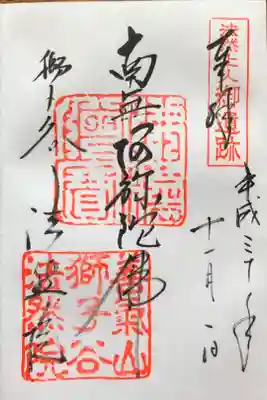 奉拝
法然上人御遺跡
平成三十年
十一月一日
南無阿弥陀佛
獅子谷 法然院
善氣山
獅子谷
法然院